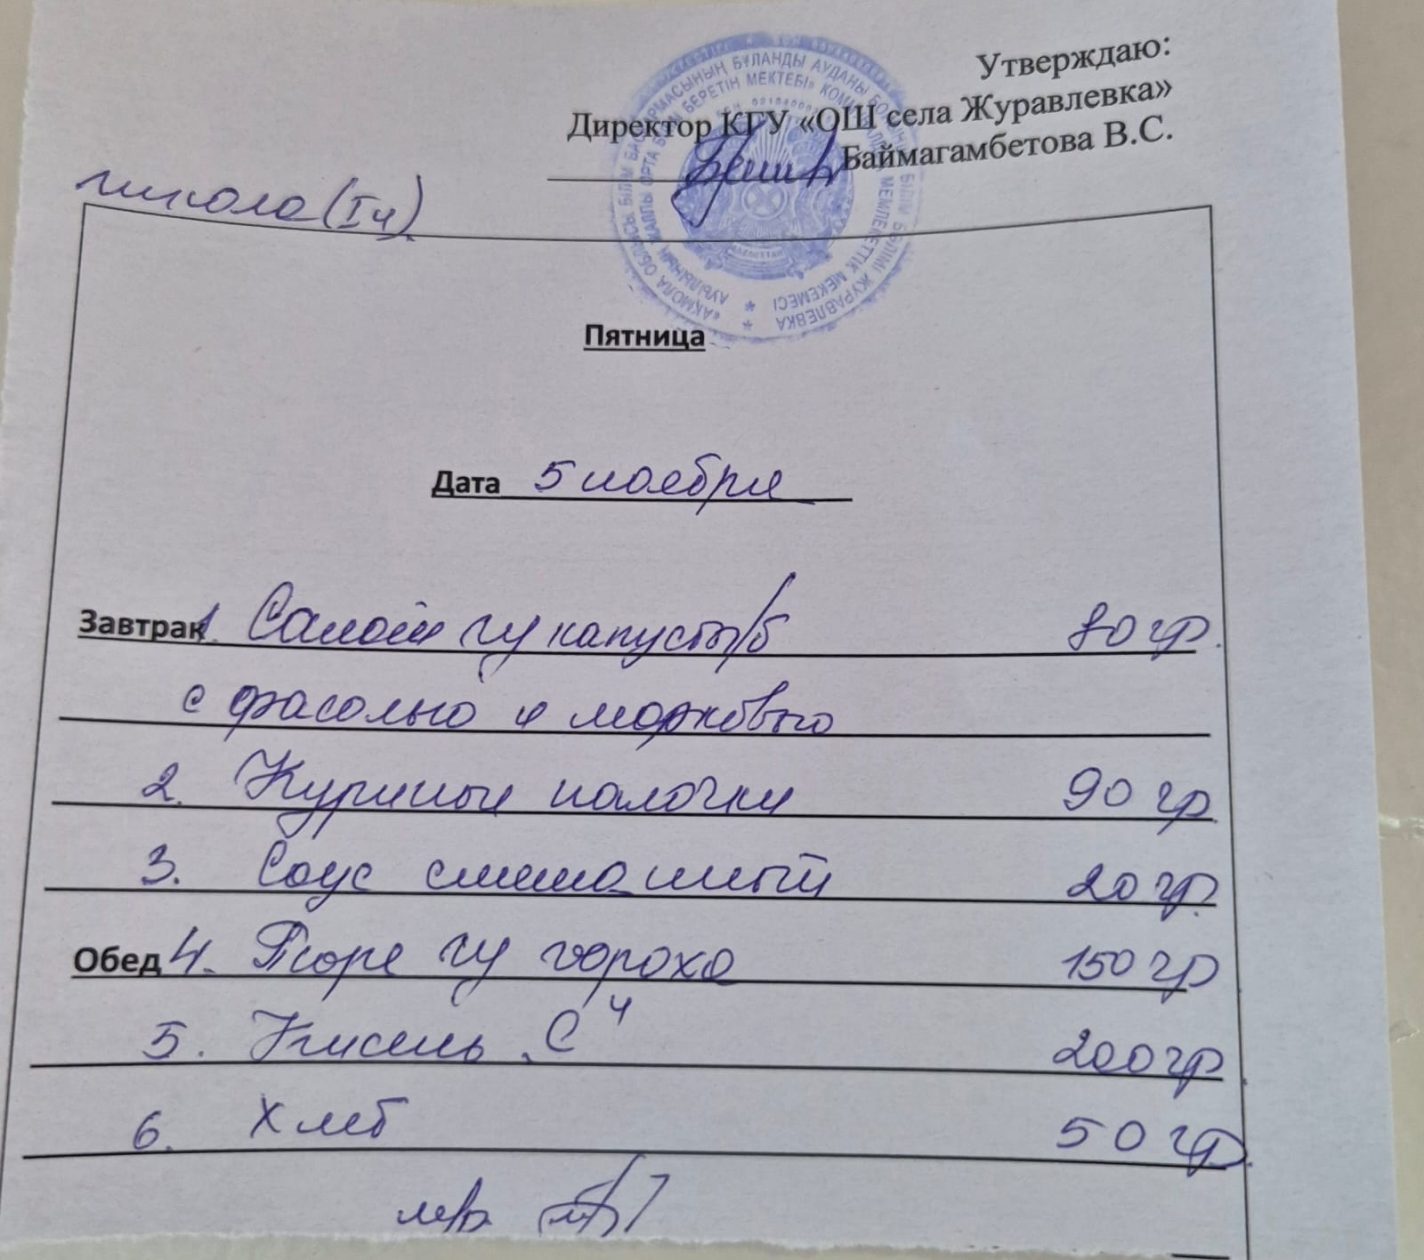 Утверждаю:
Директор КГУ «ОШ села Журавлевка»
Баймагамбетова В.С.
школа (I ч)
Пятница
Дата 5 ноября
Завтрак 1. Салат из капусты б/ 80 гр.
с фасолью и морковью
2. Куриные палочки 90 гр.
3. Соус смешанный 20 гр.
Обед 4. Пюре из гороха 150 гр
5. Кисель "С" 200 гр.
6. Хлеб 50 гр.